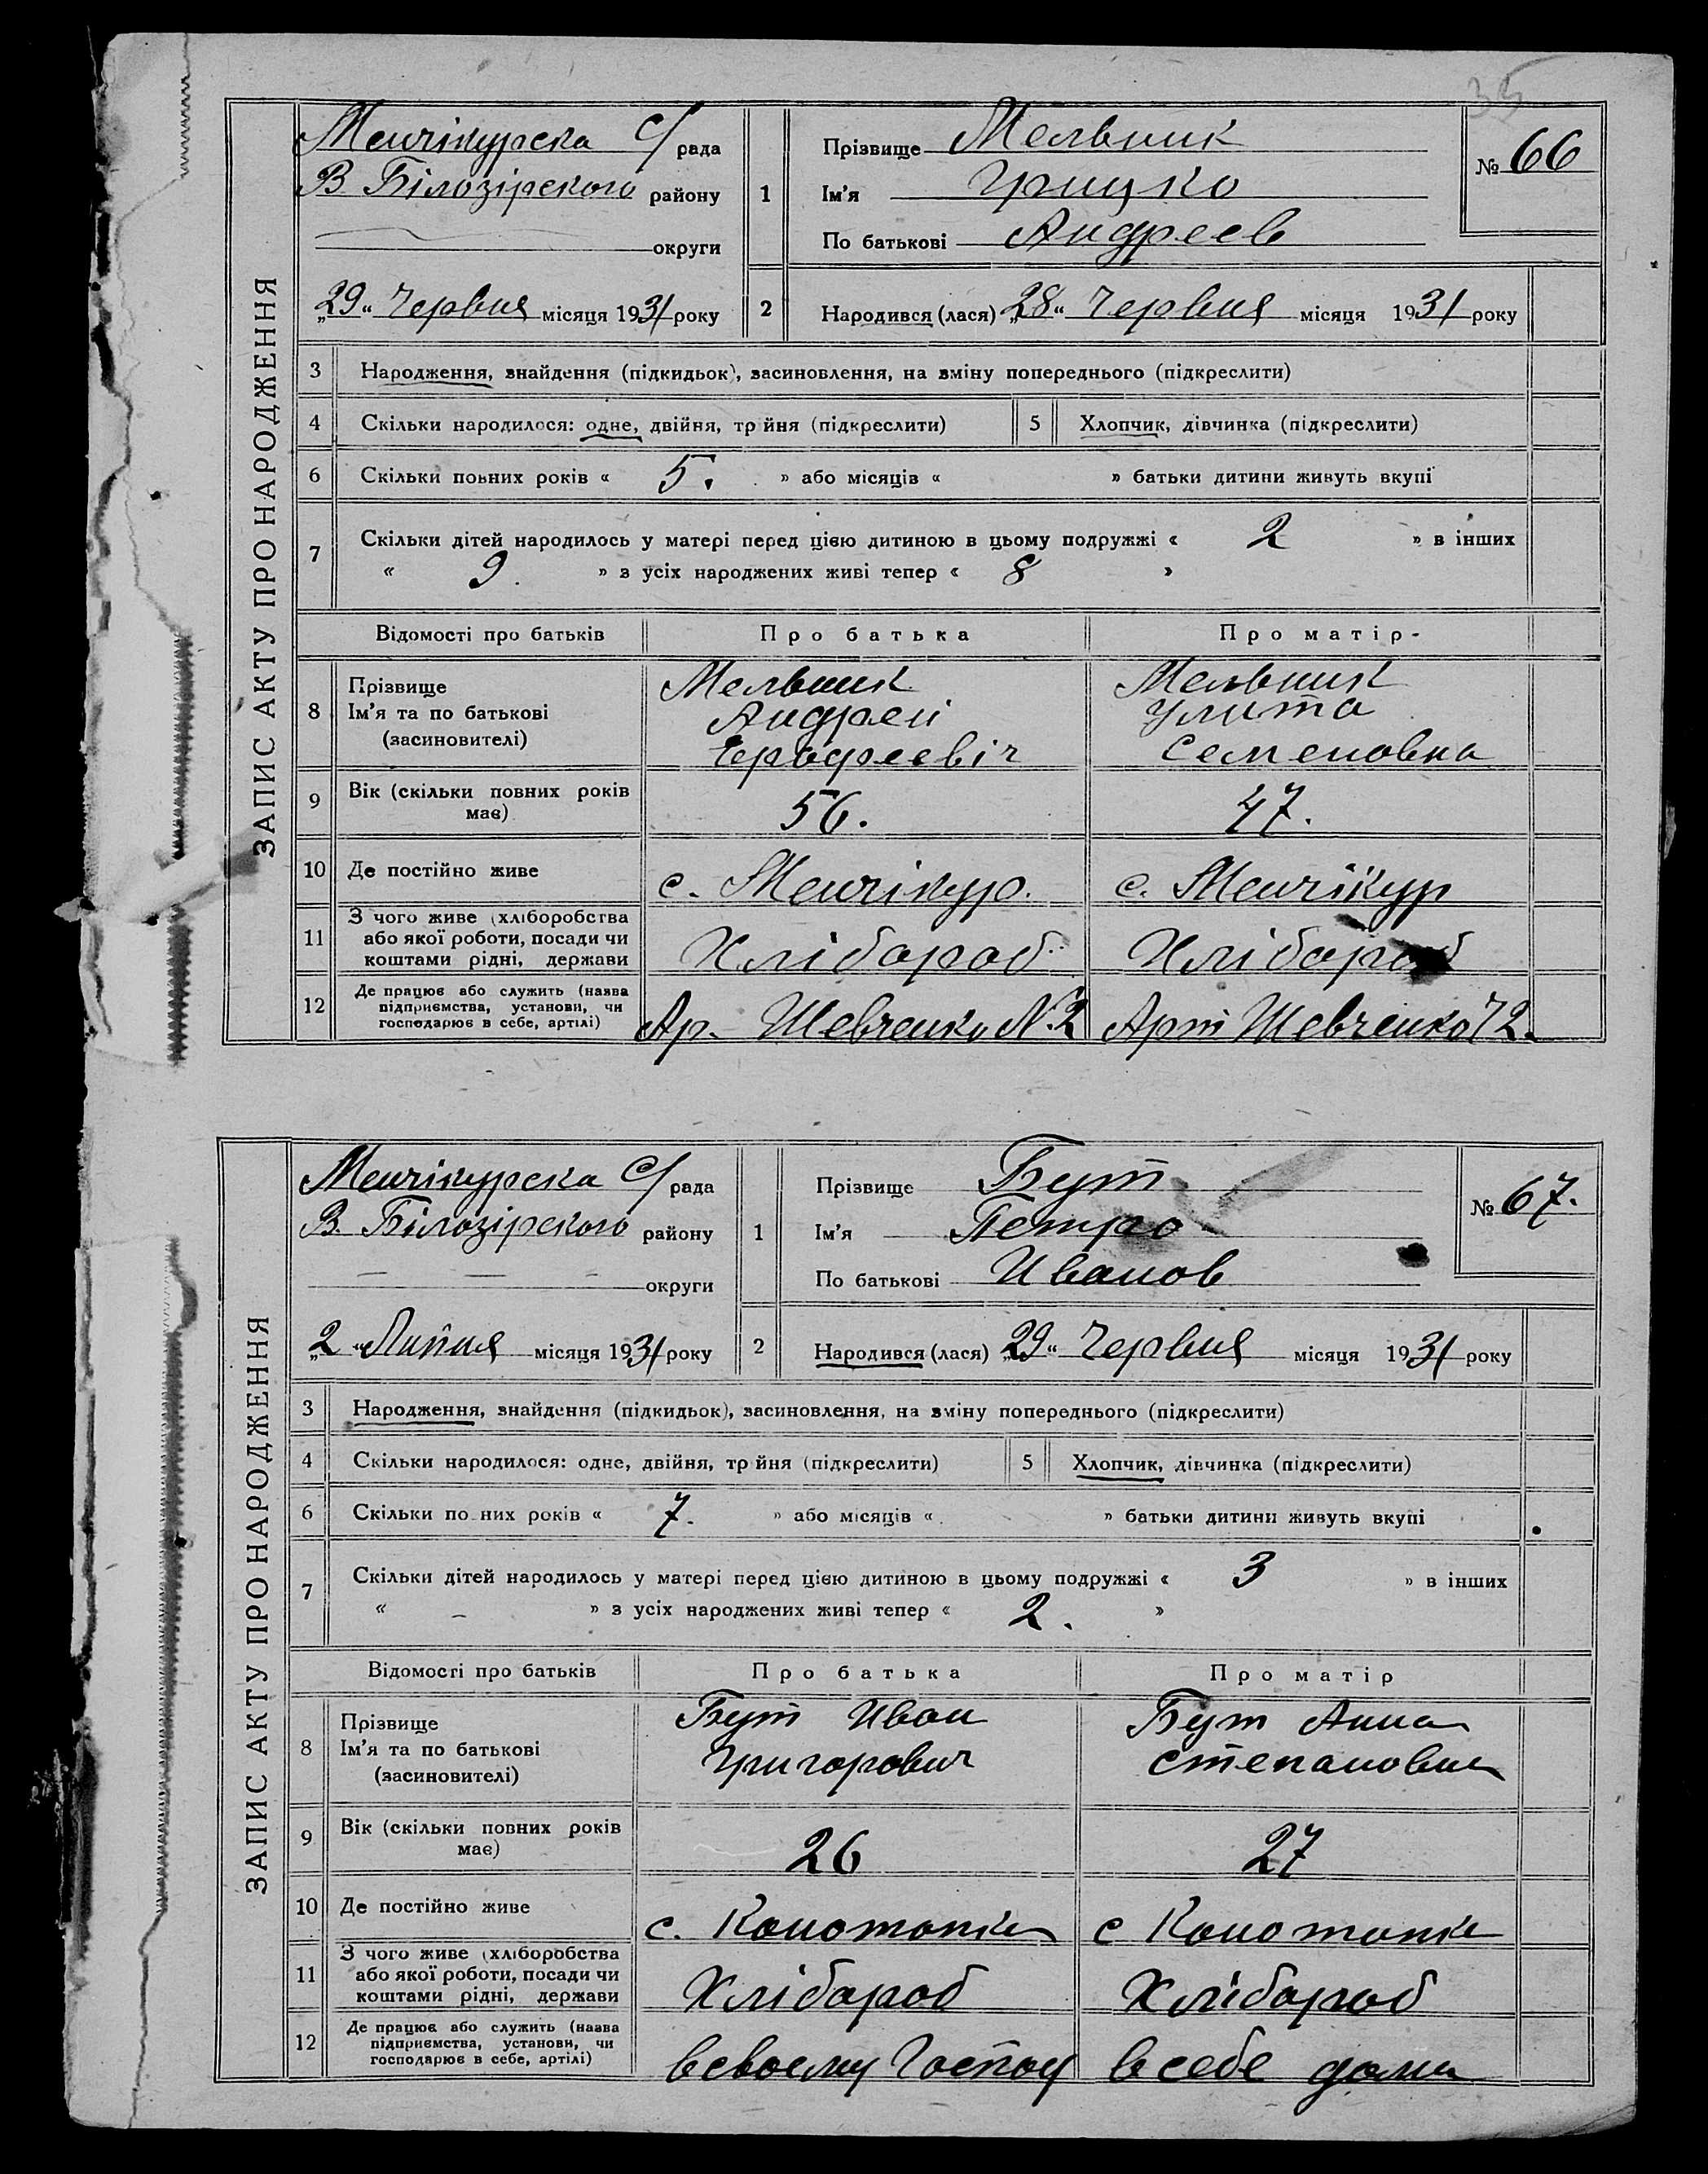 35
ЗАПИС АКТУ ПРО НАРОДЖЕННЯ
Менчікурска С/ рада
В Білозірского району
округи
„29“ Червня місяця 1931 року
1
Прізвище Мельник
Ім'я Грицко
По батькові Андреев
№ 66
2
Народився (лася) „28“ Червня місяця 1931 року
3 Народження, знайдення (підкидьок), засиновлення, на зміну попереднього (підкреслити)
4 Скільки народилося: одне, двійня, тр йня (підкреслити) 5 Хлопчик, дівчинка (підкреслити)
6 Скільки повних років « 5. » або місяців « » батьки дитини живуть вкупі
7 Скільки дітей народилось у матері перед цією дитиною в цьому подружжі « 2 » в інших
« 9. » з усіх народжених живі тепер « 8 »
Відомості про батьків Про батька Про матір
8 Прізвище
Ім'я та по батькові
(засиновителі)
Мельник
Андрей
Мельник
Улита
Семеновна
9 Вік (скільки повних років
має)
56. 47.
10 Де постійно живе с. Менчікур. с. Менчікур
11 З чого живе (хліборобства
або якої роботи, посади чи
коштами рідні, держави
Хлібороб Хлібороб
12 Де працює або служить (назва
підприємства, установи, чи
господарює в себе, артілі)
Ар. Шевченко №2 Арт Шевченко 2.
ЗАПИС АКТУ ПРО НАРОДЖЕННЯ
Менчікурска С/ рада
В. Білозірского району
округи
„2“ Липня місяця 1931 року
1
Прізвище Бут
Ім'я Петро
По батькові Иванов
№ 67.
2
Народився (лася) „29“ Червня місяця 1931 року
3 Народження, знайдення (підкидьок), засиновлення, на зміну попереднього (підкреслити)
4 Скільки народилося: одне, двійня, тр йня (підкреслити) 5 Хлопчик, дівчинка (підкреслити)
6 Скільки по них років « 7. » або місяців « » батьки дитини живуть вкупі
7 Скільки дітей народилось у матері перед цією дитиною в цьому подружжі « 3 » в інших
« – » з усіх народжених живі тепер « 2. »
Відомості про батьків Про батька Про матір
8 Прізвище
Ім'я та по батькові
(засиновителі)
Бут Иван
Григорович
Бут Анна
Степановна
9 Вік (скільки повних років
має)
26 27
10 Де постійно живе с. Конотопка с Конотопка
11 З чого живе (хліборобства
або якої роботи, посади чи
коштами рідні, держави
Хлібороб Хлібороб
12 Де працює або служить (назва
підприємства, установи, чи
господарює в себе, артілі)
в своему Господ в себе дома